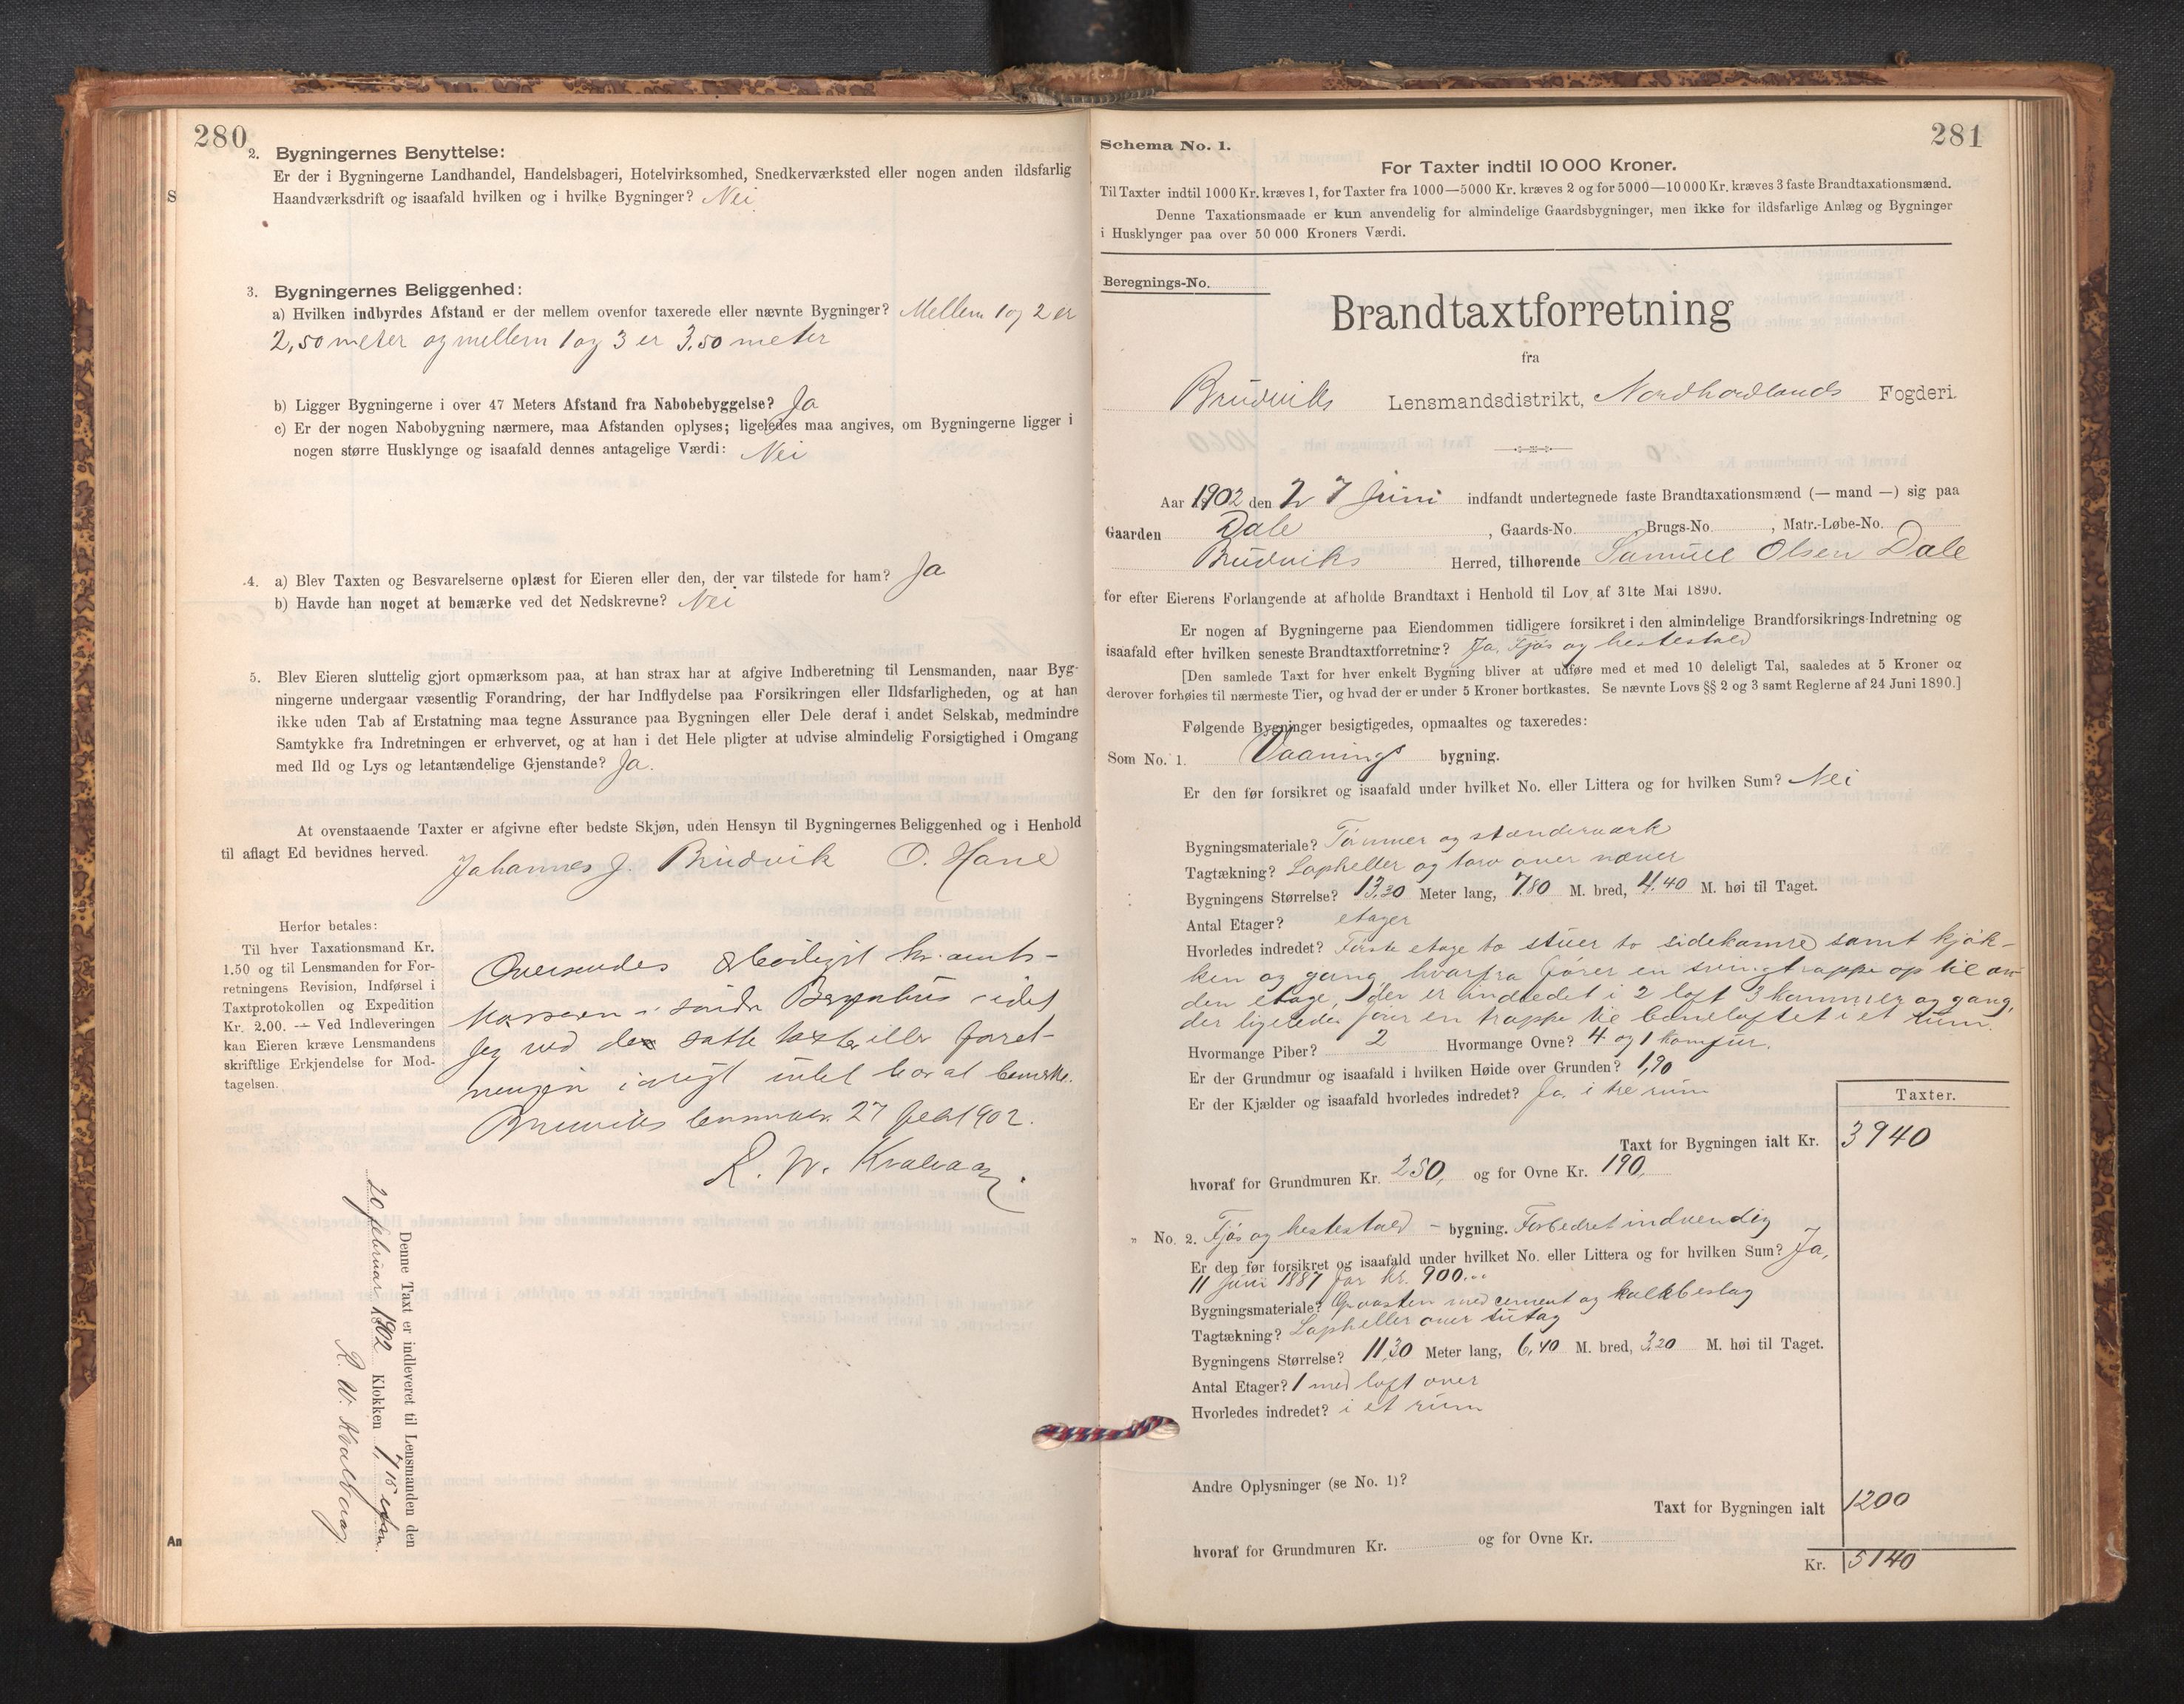 280
2. Bygningernes Benyttelse:
Er der i Bygningerne Landhandel, Handelsbageri, Hotelvirksomhed, Snedkerværksted eller nogen anden ildsfarlig
Haandværksdrift og isaafald hvilken og i hvilke Bygninger? Nei
S
3. Bygningernes Beliggenhed:
a) Hvilken indbyrdes Afstand er der mellem ovenfor taxerede eller nævnte Bygninger? Mellem 1 og 2 er
2,50 meter og mellem 1 og 3 er 3,50 meter
b) Ligger Bygningerne i over 47 Meters Afstand fra Nabobebyggelse? Ja
c) Er der nogen Nabobygning nærmere, maa Afstanden oplyses; ligeledes maa angives, om Bygningerne ligger i
nogen større Husklynge og isaafald dennes antagelige Værdi: Nei
4. a) Blev Taxten og Besvarelserne oplæst for Eieren eller den, der var tilstede for ham? Ja
b) Havde han noget at bemærke ved det Nedskrevne? Nei
5. Blev Eieren sluttelig gjort opmærksom paa, at han strax har at afgive Indberetning til Lensmanden, naar Byg-
ningerne undergaar væsentlig Forandring, der har Indflydelse paa Forsikringen eller Ildsfarligheden, og at han
ikke uden Tab af Erstatning maa tegne Assurance paa Bygningen eller Dele deraf i andet Selskab, medmindre
Samtykke fra Indretningen er erhvervet, og at han i det Hele pligter at udvise almindelig Forsigtighed i Omgang
med Ild og Lys og letantændelige Gjenstande? Ja.
At ovenstaaende Taxter er afgivne efter bedste Skjøn, uden Hensyn til Bygningernes Beliggenhed og i Henhold
til aflagt Ed bevidnes herved. Johannes J. Brudvik O. Hane
Herfor betales:
Til hver Taxationsmand Kr.
1.50 og til Lensmanden for For-
retningens Revision, Indførsel i
Taxtprotokollen og Expedition
Kr. 2.00. — Ved Indleveringen
kan Eieren kræve Lensmandens
skriftlige Erkjendelse for Mod-
tagelsen.
Oversendes ærbødigst hr. amts-
kasseren i søndre Bergenhus, idet
jeg ved de satte taxter eller forret-
ningen iøvrigt intet har at bemærke.
27 1902.
R. W. Kvalvaag.
Denne Taxt er indleveret til Lensmanden den
20 februar 1902 Klokken 1,15 efm.
R. W. Kvalvaag.
An
281
Schema No. 1.
For Taxter indtil 10 000 Kroner.
Til Taxter indtil 1000 Kr. kræves 1, for Taxter fra 1000—5000 Kr. kræves 2 og for 5000—10 000 Kr. kræves 3 faste Brandtaxationsmænd.
Denne Taxationsmaade er kun anvendelig for almindelige Gaardsbygninger, men ikke for ildsfarlige Anlæg og Bygninger
i Husklynger paa over 50 000 Kroners Værdi.
Beregnings-No.
Brandtaxtforretning
fra
Brudviks Lensmandsdistrikt, Nordhordlands Fogderi.
Aar 1902 den 27 Juni indfandt undertegnede faste Brandtaxationsmænd (— mand —) sig paa
Gaarden Dale, Gaards-No. , Brugs-No. , Matr.-Løbe-No.
Brudviks Herred, tilhørende Samuel Olsen Dale
for efter Eierens Forlangende at afholde Brandtaxt i Henhold til Lov af 31te Mai 1890.
Er nogen af Bygningerne paa Eiendommen tidligere forsikret i den almindelige Brandforsikrings-Indretning og
isaafald efter hvilken seneste Brandtaxtforretning? Ja, Fjøs og hestestald
[Den samlede Taxt for hver enkelt Bygning bliver at udføre med et med 10 deleligt Tal, saaledes at 5 Kroner og
derover forhøies til nærmeste Tier, og hvad der er under 5 Kroner bortkastes. Se nævnte Lovs §§ 2 og 3 samt Reglerne af 24 Juni 1890.]
Følgende Bygninger besigtigedes, opmaaltes og taxeredes:
Som No. 1. Vaanings bygning.
Er den før forsikret og isaafald under hvilket No. eller Littera og for hvilken Sum? Nei
Bygningsmateriale? Tømmer og stænderværk
Tagtækning? Lapheller og torv over næver
Bygningens Størrelse? 13,30 Meter lang, 7,80 M. bred, 4,40 M. høi til Taget.
Antal Etager? etager
Hvorledes indredet? Første etage to stuer to sidekamre samt kjøk-
ken og gang, hvorfra fører en svingtrappe op til an-
den etage, der er indredet i 2 loft 3 kammer og gang,
der ligeledes fører en trappe til baneloftet i et rum.
Hvormange Piber? 2 Hvormange Ovne? 4 og 1 komfur.
Er der Grundmur og isaafald i hvilken Høide over Grunden? 1,90
Er der Kjælder og isaafald hvorledes indredet? Ja, i tre rum
Taxter.
Taxt for Bygningen ialt Kr. 3940
hvoraf for Grundmuren Kr. 250, og for Ovne Kr. 190,
„ No. 2. Fjøs og hestestald - bygning. Forbedret indvendig
Er den før forsikret og isaafald under hvilket No. eller Littera og for hvilken Sum? Ja,
11 Juni 1887 for kr. 900..
Bygningsmateriale? Graasten med cement og kalkbeslag
Tagtækning? Lapheller over sutag
Bygningens Størrelse? 11,30 Meter lang, 6,40 M. bred, 3,20 M. høi til Taget.
Antal Etager? 1 med loft over
Hvorledes indredet? i et rum
Andre Oplysninger (se No. 1)?
Taxt for Bygningen ialt 1200
hvoraf for Grundmuren Kr. og for Ovne Kr.
Kr. 5140